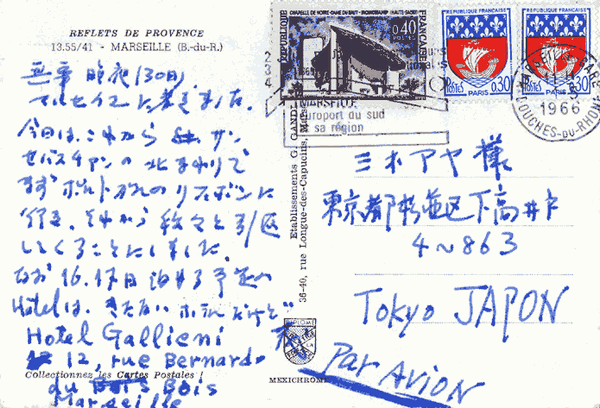 REFLETS DE PROVENCE
13.55/41 - MARSEILLE (B.-du-R.)
無事 昨夜(30日)
マルセイユに着きました。
今日は、これから サン
セバスチァンの北まわりで
まずポルトガルのリスボンに
行き、それから
していくことにしました。
なお 16. 17日 泊まる予定の
Hotelは、きたない ホテルだけど
Hotel Gallieni
12, rue Bernard
du Bois
Marseille
Collectionnez les Cartes Postales !
Etablissements G. GANDI
36-40, rue Longue-des-Capucins, Mars
MEXICHROME
CHAPELLE DE NOTRE-DAME DU HAUT - RONCHAMP (HAUTE-SAONE)
REPUBLIQUE
FRANÇAISE
0,40
POSTES
MARSEILLE
europort du sud
et sa région
REPUBLIQUE FRANÇAISE
POSTES
0,30
PARIS
REPUBLIQUE FRANÇAISE
POSTES
0,30
PARIS
1966
BOUCHES-DU-RHONE
ミホアヤ様
東京都杉並区下高井戸
4~863
Tokyo JAPON
Par AVION